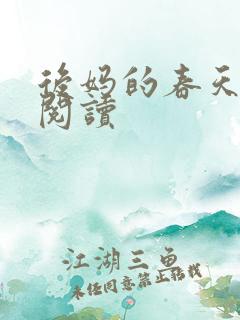 後妈的春天
閱讀
江湖三鱼
未经同意禁止转载